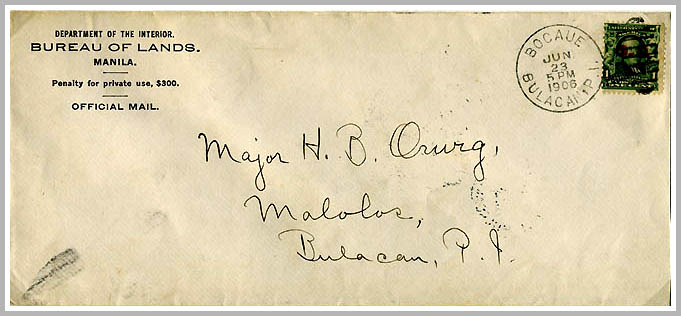 DEPARTMENT OF THE INTERIOR.
BUREAU OF LANDS.
MANILA.
Penalty for private use, $300.
OFFICIAL MAIL.
BOCAUE
JUN
23
5 PM
1906
BULACAN P.I.
Major H. B. Orwig,
Malolos,
Bulacan, P. I.